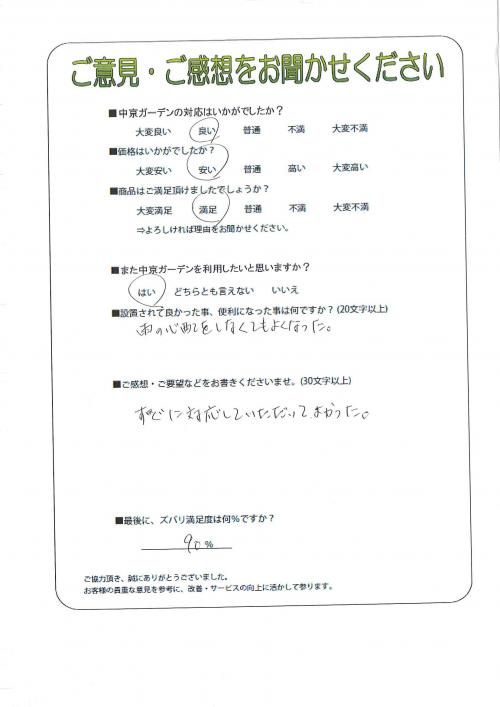 ご意見・ご感想をお聞かせください
■中京ガーデンの対応はいかがでしたか？
大変良い 良い 普通 不満 大変不満
■価格はいかがでしたか？
大変安い 安い 普通 高い 大変高い
■商品はご満足頂けましたでしょうか？
大変満足 満足 普通 不満 大変不満
⇒よろしければ理由をお聞かせください。
■また中京ガーデンを利用したいと思いますか？
はい どちらとも言えない いいえ
■設置されて良かった事、便利になった事は何ですか？(20文字以上)
雨の心配をしなくてもよくなった。
■ご感想・ご要望などをお書きくださいませ。(30文字以上)
すぐに対応していただいてよかった。
■最後に、ズバリ満足度は何%ですか？
90 %
ご協力頂き、誠にありがとうございました。
お客様の貴重な意見を参考に、改善・サービスの向上に活かして参ります。